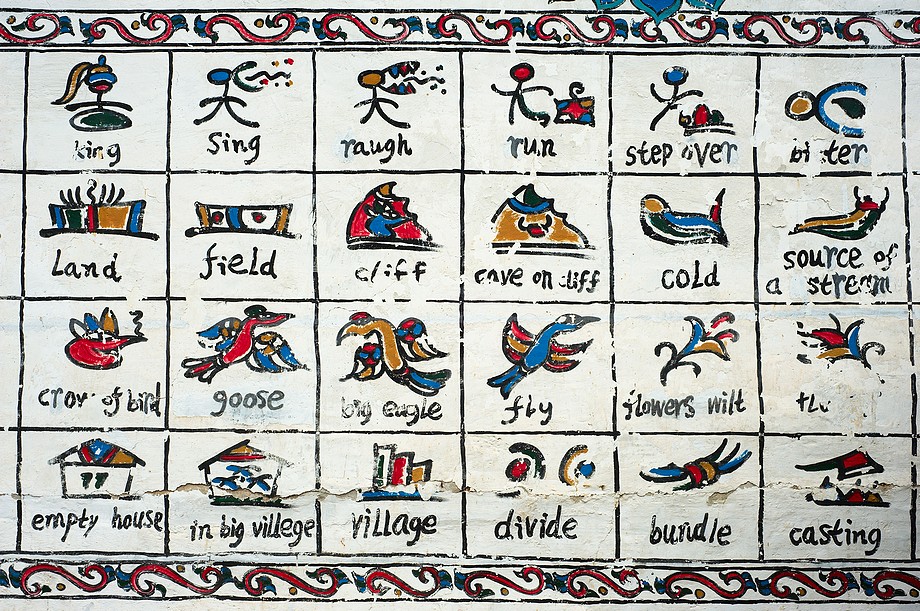 king
Sing
raugh
run
step over
bitter
Land
field
cliff
cave on cliff
cold
source of
a stream
crow of bird
goose
big eagle
fly
flowers wilt
empty house
in big villege
village
divide
bundle
casting